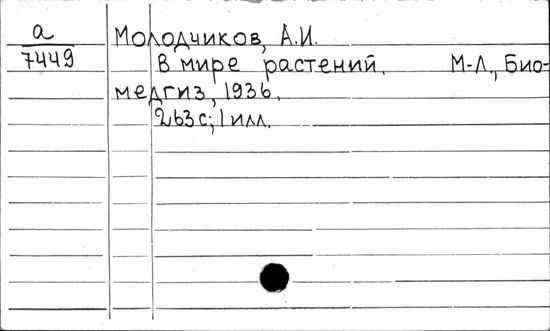 а
7449
Молодчиков, А.И.
В мире растений. М-Л., Био-
медгиз, 1936.
263 с; 1 илл.